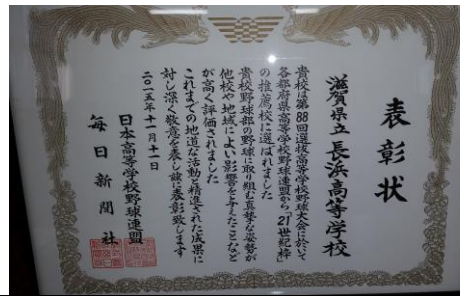 表彰状
滋賀県立長浜高等学校
貴校は第88回選抜高等学校野球大会に於いて
各都府県高等学校野球連盟から「21世紀枠」
の推薦校に選ばれました
貴校野球部の野球に取り組む真摯な姿勢が
他校や地域によい影響を与えたことなど
が高く評価されました
これまでの地道な活動と精進された成果に
対し深く敬意を表し茲に表彰致します
二〇一五年十一月十一日
日本高等学校野球連盟
毎日新聞社